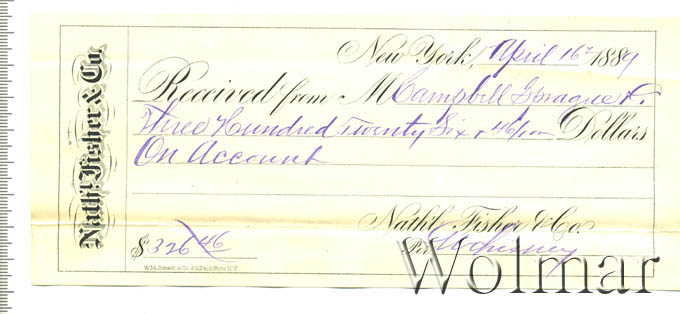 Nath'l Fisher & Co.
New York, April 16th 1889
Received from M Campbell Sprague &.
Three Hundred Twenty Six & 46/100 Dollars
On Account
Nath'l Fisher & Co.
$326 46
Per
Wolmar